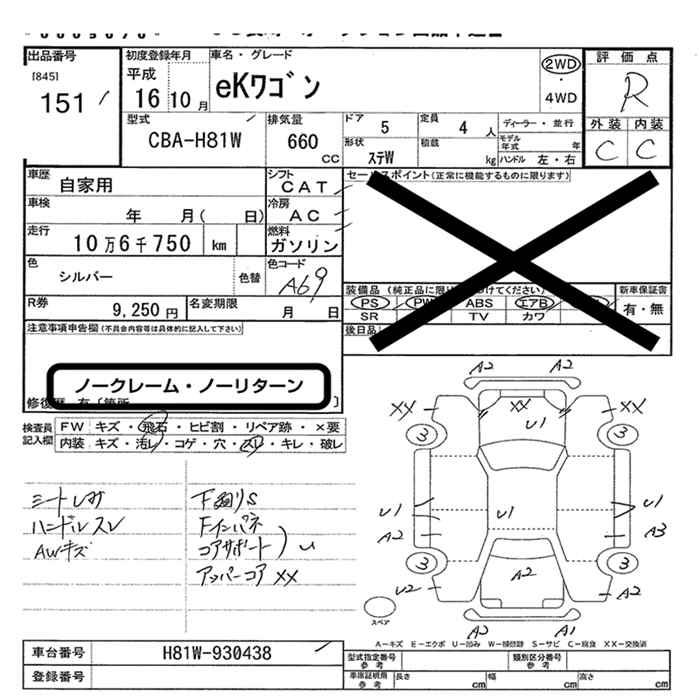 出品番号
[845]
151
初度登録年月
平成
16 10月
車名・グレード
eKワゴン
2WD
・
4WD
評価点
R
外装 内装
C C
型式
CBA-H81W
排気量
660
CC
ドア 5
定員 4 人
ディーラー・並行
形状
ステW
積載
kg
モデル年式 年
ハンドル 左・右
車歴
自家用
シフト
CAT
セールスポイント(正常に機能するものに限ります)
車検
年 月( 日)
冷房
AC
走行
10万6千750 km
燃料
ガソリン
色
シルバー
色替
色コード
A69
装備品
PS PW ABS エアB
SR TV カワ
新車保証書
有・無
R券
9,250円
名変期限
月 日
後日品
注意事項申告欄(不具合内容等は具体的に記入して下さい)
ノークレーム・ノーリターン
検査員
記入欄
FW キズ・飛石・ヒビ割・リペア跡・×要
内装 キズ・汚レ・コゲ・穴・スレ・キレ・破レ
シートしみ
ハンドルスレ
AWキズ
下廻りS
Fインパネ
コアサポート
U
アッパーコアXX
A2 A2
XX XX XX
U1
3 3
U1 U1 U1
A2 A3
3 3
A2
U2 A2
A2 A1
スペア
A―キズ E―エクボ U―凹み W―補修跡 S―サビ C―腐食 XX―交換済
車台番号
H81W-930438
登録番号
型式指定番号
参考
類別区分番号
参考
車庫証明用
参考
長さ cm
幅 cm
高さ cm